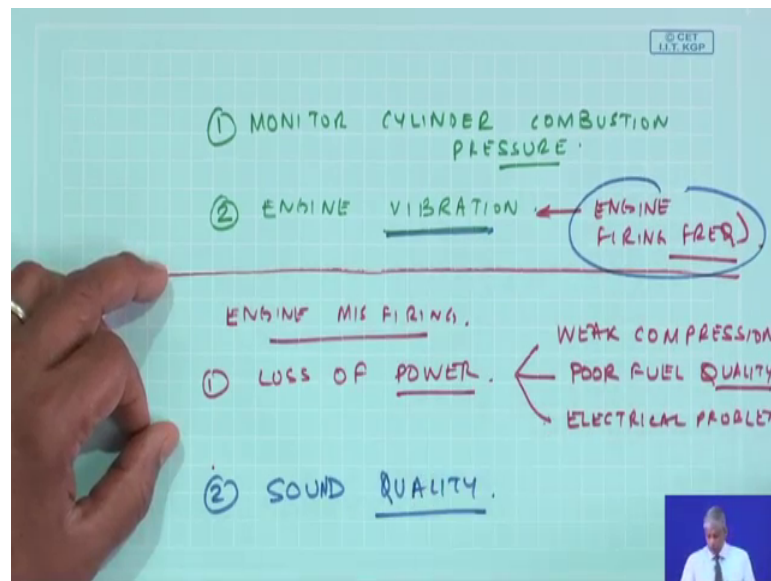 © CET
I.I.T. KGP
① MONITOR CYLINDER COMBUSTION
PRESSURE.
② ENGINE VIBRATION ← ENGINE
FIRING FREQ)
ENGINE MISFIRING.
WEAK COMPRESSION
① LOSS OF POWER. POOR FUEL QUALITY
ELECTRICAL PROBLE
② SOUND QUALITY.